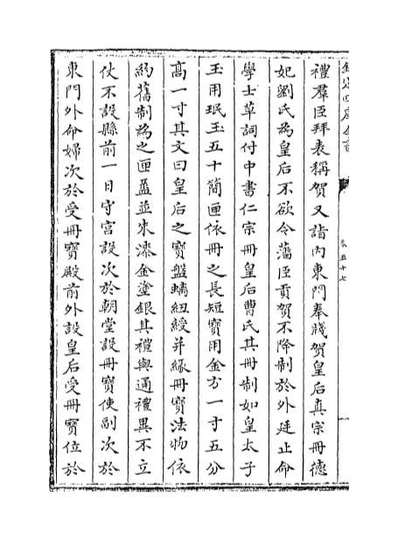 欽定四庫全書
卷五十七
一
禮羣臣拜表稱賀又詣内東門奉牋賀皇后真宗冊德
妃劉氏為皇后不欲令藩臣貢賀不降制於外廷止命
學士草詞付中書仁宗冊皇后曹氏其冊制如皇太子
玉用珉玉五十簡匣依冊之長短寶用金方一寸五分
高一寸其文曰皇后之寶盤螭紐綬并緣冊寶法物依
約舊制為之匣盝並朱漆金塗銀其禮與通禮異不立
仗不設縣前一日守宮設次於朝堂設冊寶使副次於
東門外命婦次於受冊寶殿前外設皇后受冊寶位於